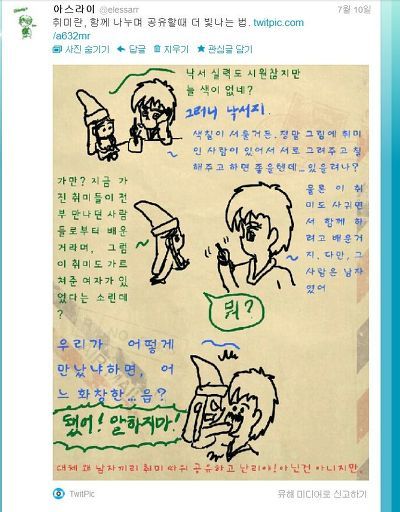 아스라이 @elessarr
7월 10일
취미란, 함께 나누며 공유할때 더 빛나는 법. twitpic.com
/a632mr
사진 숨기기 답글 지우기 관심글 담기
낙서 실력도 시원찮지만
늘 색이 없네?
그러니 낙서지.
색칠이 서툴거든. 정말 그림에 취미
인 사람이 있어서 서로 그려주고 칠
해주고 하면 좋을텐데...있을려나?
가만? 지금 가
진 취미들이 전
부 만나던 사람
들로부터 배운
거라며, 그럼
이 취미도 가르
쳐준 여자가 있
었다는 소린데
?
물론 이 취
미도 사귀면
서 함께 하
려고 배운거
지. 다만, 그
사람은 남자
였어
뭐?
우리가 어떻게
만났냐하면, 어
느 화창한...읍?
됐어! 말하지마!
대체 왜 남자끼리 취미 따위 공유하고 난리야!아닌건 아니지만,
TwitPic
유해 미디어로 신고하기